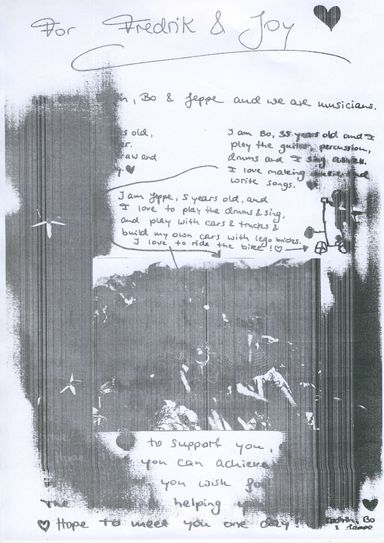 For Fredrik & Joy
Bo & Jeppe and we are musicians.
s old,
I am Bo, 35 years old and I
play the guitar, percussion,
draw and
drums and I sing
I love making music and
write songs.
I am Jeppe, 5 years old, and
I love to play the drums & sing,
and play with cars & trucks &
build my own cars with lego bricks.
I love to ride the bike!
to support you,
you can achieve
you wish fo
The helping
Hope to meet you one day! Bo